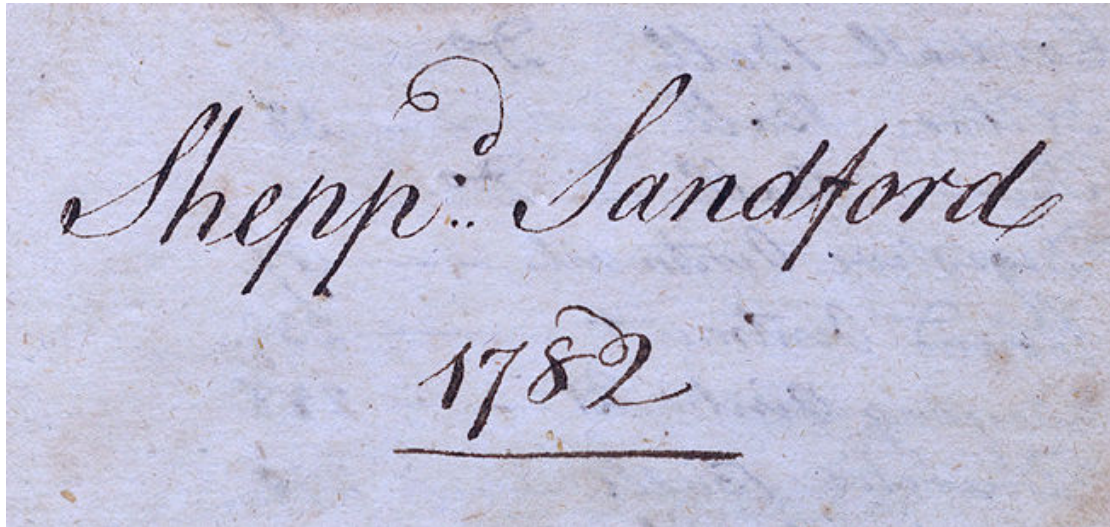 Shepp.ᵈ Sandford
1782